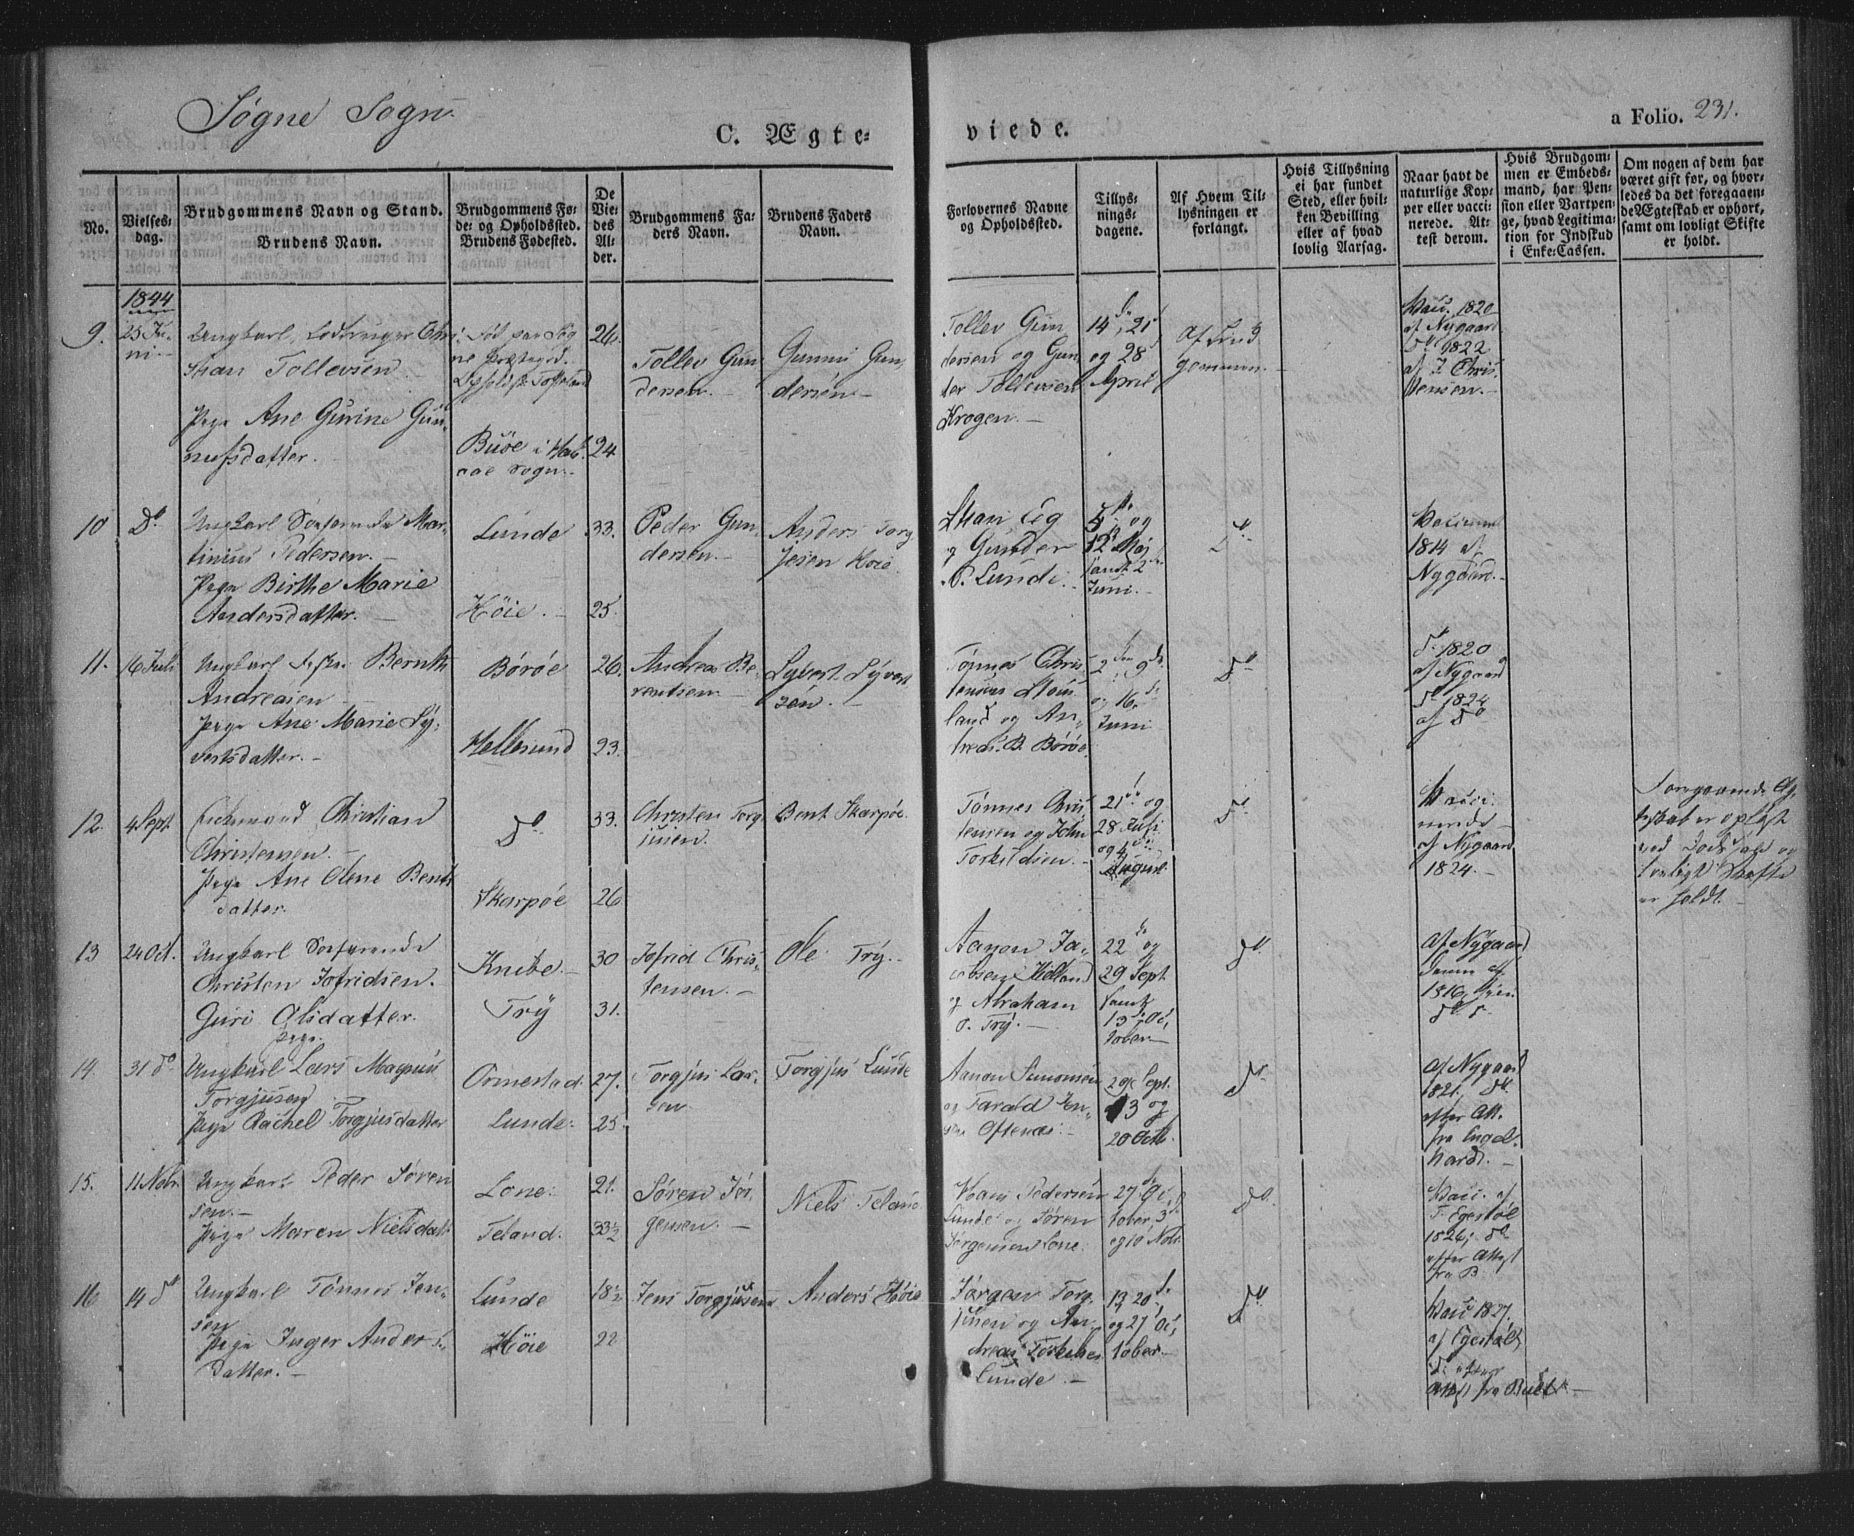 Søgne Sogn
C. Ægte-
viede.
a Folio. 231.
No.
Vielses-
dag.
Brudgommens Navn og Stand.
Brudens Navn.
Brudgommens Fø-
de- og Opholdssted.
Brudens Fødested.
De
Vie-
des
Al-
der.
Brudgommens Fa-
ders Navn.
Brudens Faders
Navn.
Forlovernes Navne
og Opholdssted.
Tillys-
nings-
dagene.
Af Hvem Til-
lysningen er
forlangt.
Hvis Tillysning
ei har fundet
Sted, eller hvil-
ken Bevilling
eller af hvad
lovlig Aarsag.
Naar havt de
naturlige Kop-
per eller vacci-
nerede. At-
test derom.
Hvis Brudgom-
men er Embeds-
mand, har Pen-
sion eller Vartpen-
ge, hvad Legitima-
tion for Indskud
i Enke-Cassen.
Om nogen af dem har
været gift før, og hvor-
ledes da det foregaaen-
de Ægteskab er ophørt,
samt om lovligt Skifte
er holdt.
1844
9.
25 Ju-
ni
Ungkarl,
Tollevsen
Pige Ane Gurine Gun-
nufsdatter.
Buøe i
Sogn
26.
24
Tollev Gun-
dersen.
Gunnu Gun-
dersen
Tollev Gun-
dersen og Gun-
der Tollevsen
Krogen.
14, 21
og 28
April
Vaci. 1820
af Nygaard
Do 1822
af J. Chris-
tensen.
10
Do
Ungkarl Søefarende Mar-
tinius Pedersen.
Pige Birthe Marie
Andersdatter.
Lunde
Høie.
33.
25.
Peder Gun-
dersen.
Anders Torg-
jesen Høie.
og Gunder
P. Lunde.
5 og
12 Maj
samt 2
Juni.
Do
1814 af
Nygaard.
11.
16 Juli
Ungkarl Bernth
Andreasen
Pige Ane Marie Sy-
vertsdatter.
Børøe
Hellesund
26.
23.
Andreas Be-
rentsen
Syvert Syvert-
sen.
Tønnes Chris-
tensen
land og An-
dreas B. Børøe
2 9
og 16
Juni
Do
Do 1820
af Nygaard
Do 1824
af Do
12.
4 Sept.
Enkemand Christian
Christensen.
Pige Ane Olene Bents-
datter.
Do
Skarpøe
33.
26
Christen Torg-
jusen.
Bent Skarpøe.
Tønnes Chris-
tensen og John
Torkildsen.
21 og
28 Juli
og 4
August
Do
Vacci-
nerede
af Nygaard
1824.
Foregaaende Æg-
teskab er opløst
ved Dødsfald og
lovligt Skifte
er holdt.
13
24 Oct.
Ungkarl Søefarende
Christen Jofridsen.
Guri Olsdatter.
Pige
Knibe
Try
30
31.
Jofrid Chris-
tensen.
Ole Try.
Aanon Ja-
cobsen
og Abraham
O. Try.
22 og
29 Sept.
samt
13 Oc-
tober
Do
Af Nygaard
1816,
14.
31 do
Ungkarl Lars Magnus
Torgjusen
Pige Rachel Torgjusdatter
Ormestad.
Lunde.
27.
25.
Torgjus Lar-
sen
Torgjus Lunde
Aanon Simonsen
og Tarald Jen-
sen Oftenæs.
29 Sept.
13 og
20 Octb.
Do
Af Nygaard
1821. Do
efter Att.
fra Engel-
hardt.
15.
11 Nobr.
Ungkarl Peder Søren-
sen.
Pige Maren Nielsdat
Lone.
Teland.
21.
33½
Søren Jør-
gensen.
Niels Teland
Pedersen
Lunde og Søren
Jørgensen Lone.
27 Oc-
tober, 3
og 10 Nobr
Do
Vaci. af
T. Egestøl
1826; Do
efter Attest
fra B.
16
14 do
Ungkarl Tønnes Jen-
sen
Pige Inger Anders-
datter.
Lunde
Høie
18½
22
Jens Torgjusen
Anders Høie
Jørgen Torg-
jusen og An-
dreas
Lunde.
13 20
og 27 Oc-
tober
Do
Vaci 1827.
af Egestøl,
Do efter
Attest fra